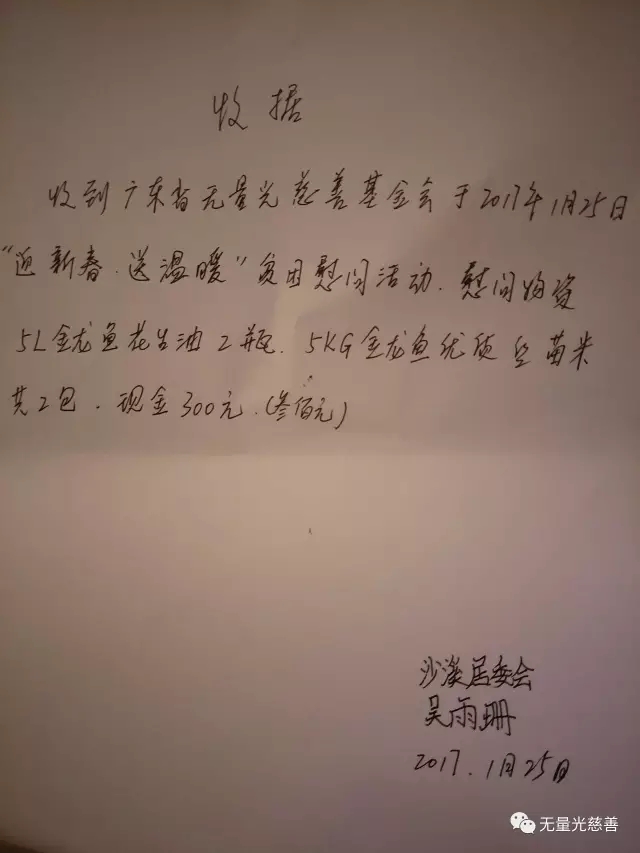 收据
收到广东省无量光慈善基金会于2017年1月25日
“迎新春.送温暖”贫困慰问活动.慰问物资
5L金龙鱼花生油2瓶.5KG金龙鱼优质丝苗米
共2包.现金300元.(叁佰元)
沙溪居委会
吴雨珊
2017.1月25日
无量光慈善